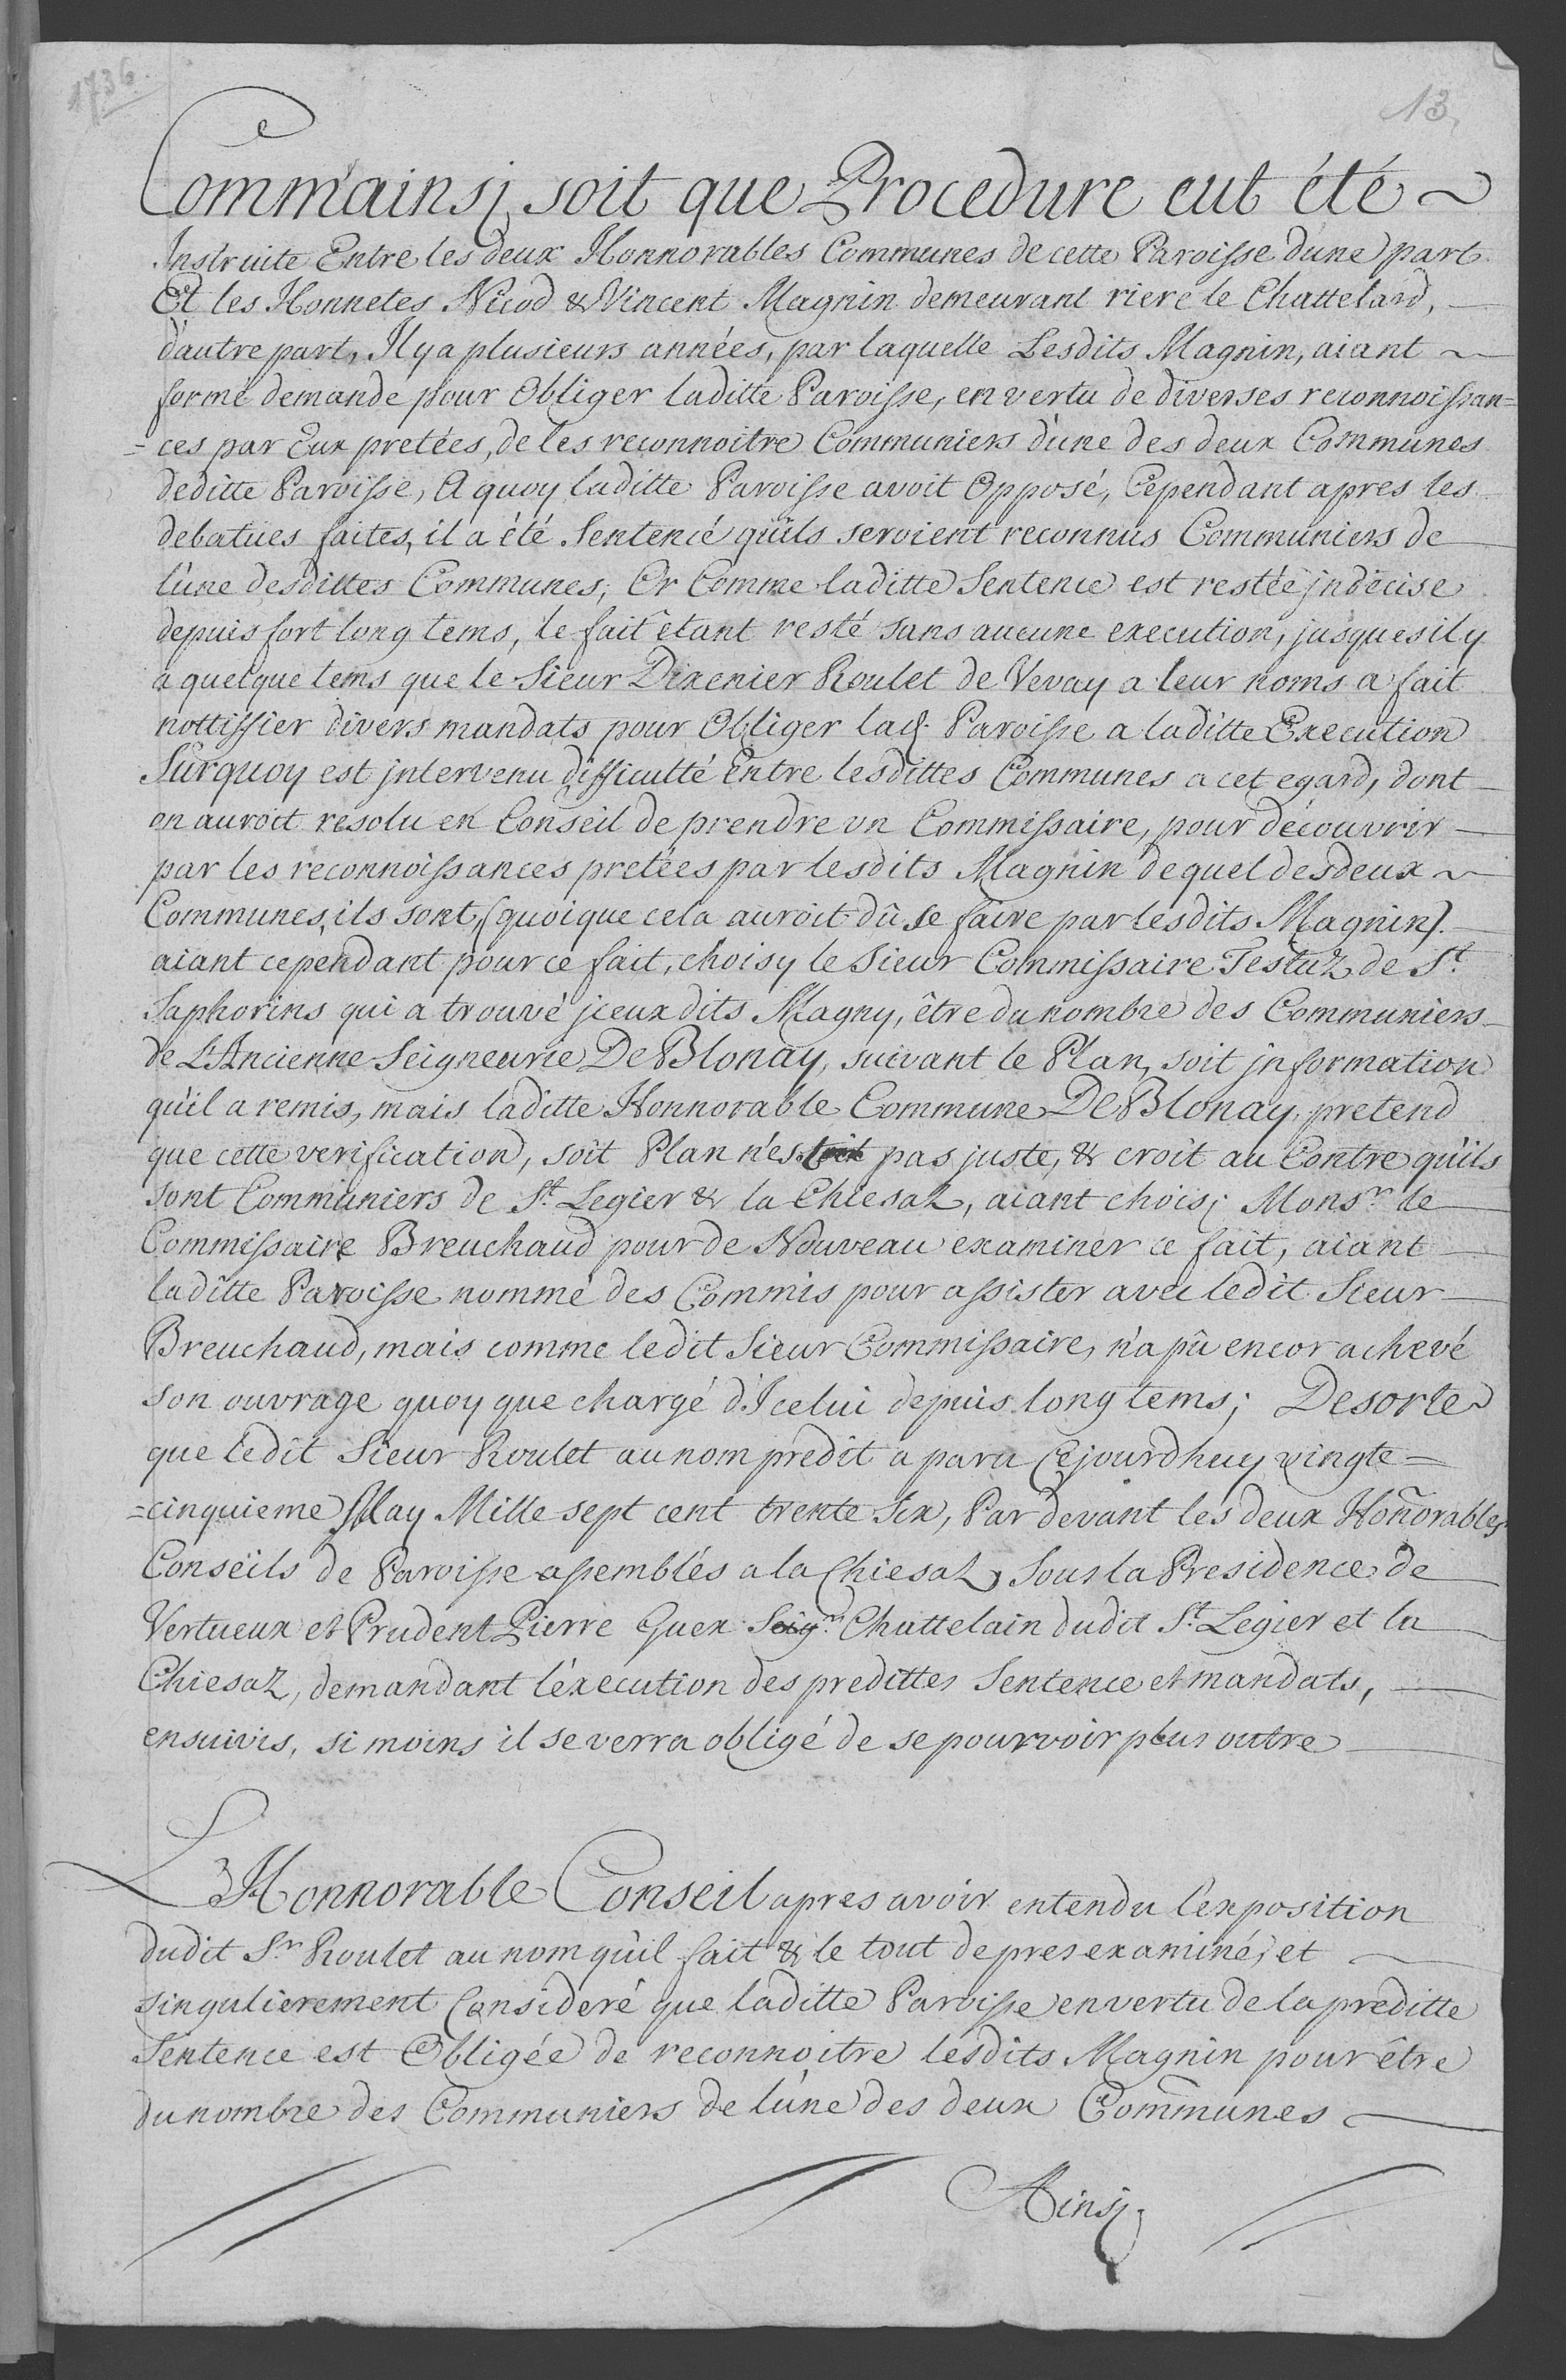 1736.
13
Comm'ainsj soit que Procedure eut été
Instruite Entre les deux Honnorables Communes de cette Paroisse dune part
Et les Honnetes Nicod & Vincent Magnin demeurant riere le Chattelard,
d'autre part, Il y a plusieurs années, par laquelle Lesdits Magnin, aiant
formé demande pour Obliger laditte Paroisse, en vertu de diverses reconnoissan=
=ces par Eux pretées, de les reconnoitre Communiers d'une des deux Communes
deditte Paroisse, A quoy laditte Paroisse avoit Opposé, Cependant apres les
debatues faites, il a été Sentencé qu'ils seroient reconnus Communiers de
l'une desdittes Communes, Or Comme laditte Sentence est restée jndecise
depuis fort long tems, le fait étant resté sans aucune execution, jusques il y
a quelque tems que le Sieur Dixenier Roulet de Vevay a leur noms a fait
nottiffier divers mandats pour Obliger lad. Paroisse a laditte Execution
Surquoy est jntervenu difficulté Entre lesdittes Communes a cet egard, dont
on auroit resolu en Conseil de prendre vn Commissaire, pour découvrir
par les reconnoissances pretées par lesdits Magnin de quel des deux
Communes, ils sont, (quoique cela auroit dû se faire par lesdits Magnin).
aiant cependant pour ce fait, choisy le Sieur Commissaire Testuz de St
Saphorins qui a trouvé jceux dits Magny, être du nombre des Communiers
de L'Ancienne Seigneurie De Blonay, suivant le Plan, soit jnformation
qu'il a remis, mais laditte Honnorable Commune De Blonay, pretend
que cette verification, soit Plan n'est pas juste, & croit au Contre qu'ils
sont Communiers de St Legier & la Chiesaz, aiant choisj Monsr le
Commissaire Breuchaud pour de Nouveau examiner ce fait, aiant
laditte Paroisse nommé des Commis pour assister avec ledit Sieur
Breuchaud, mais comme ledit Sieur Commissaire, n'a pû encor achevé
son ouvrage quoy que chargé d'Icelui depuis long tems; Desorte
que ledit Sieur Roulet au nom predit a paru Cejourdhuy vingte=
=cinquieme May Mille sept cent trente Six, Par devant les deux Hon̄orables
Conseils de Paroisse assemblés a la Chiesaz, Sous la Presidence de
Vertueux et Prudent Pierre Guex Seigr. Chattelain dudit St. Legier et la
Chiesaz, demandant l'éxecution des predittes Sentence et mandats,
ensuivis, si moins il se verra obligé de se pourvoir plus outre
L'Honnorable Conseil apres avoir entendu l'exposition
dudit Sr Roulet au nom qu'il fait & le tout de pres examiné, et
singulierement Consideré que laditte Paroisse en vertu de la preditte
Sentence est Obligée de reconnoitre lesdits Magnin pour être
du nombre des Communiers de l'une des deux Com̄unes
Ainsj